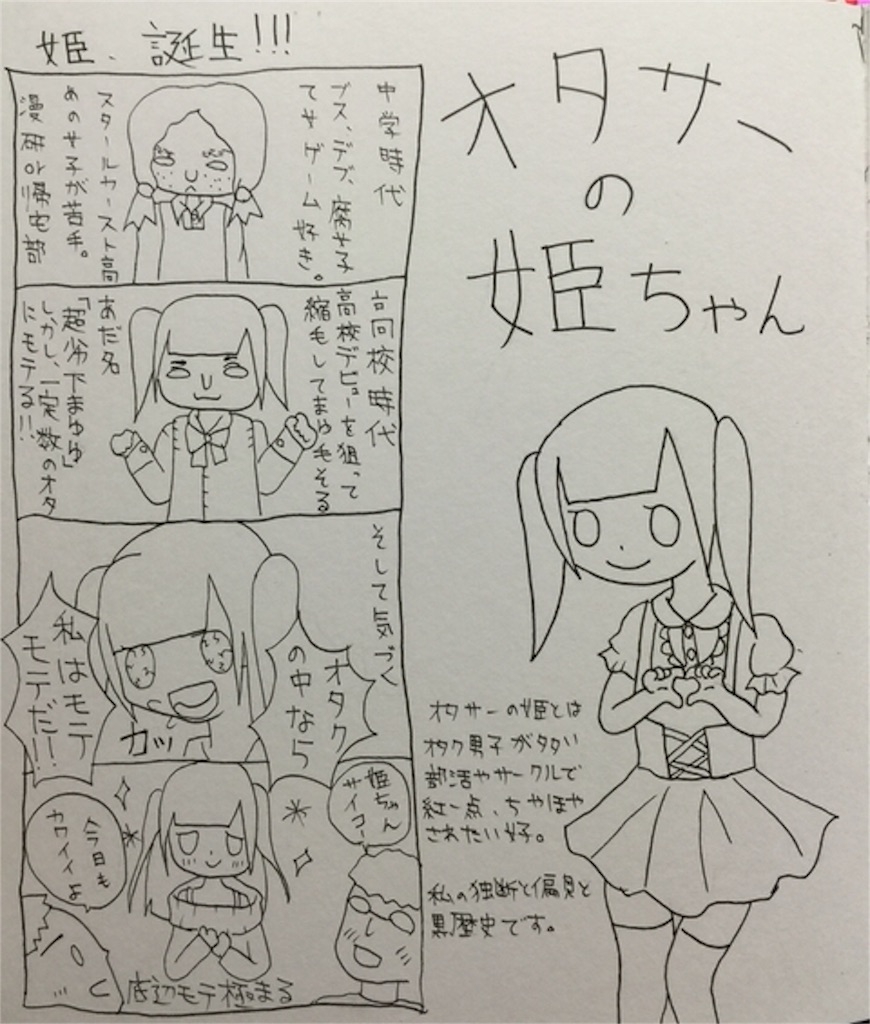 オタサー
の
姫ちゃん
姫、誕生!!!
中学時代
ブス、デブ、腐女子
てかゲーム好き。
スクールカースト高
めの女子が苦手。
漫研or帰宅部
高校時代
高校デビューを狙って
縮毛してまゆ毛そる
あだ名
「超劣下まゆゆ」
しかし、一定数のオタ
にモテる!!
そして気づく
オタク
の中なら
私はモテ
モテだ!!
カッ
姫ちゃん
サイコー
今日も
カワイイよ
底辺モテ極まる
オタサーの姫とは
オタク男子が多い
部活やサークルで
紅一点、ちやほや
されたい好。
私の独断と偏見と
黒歴史です。